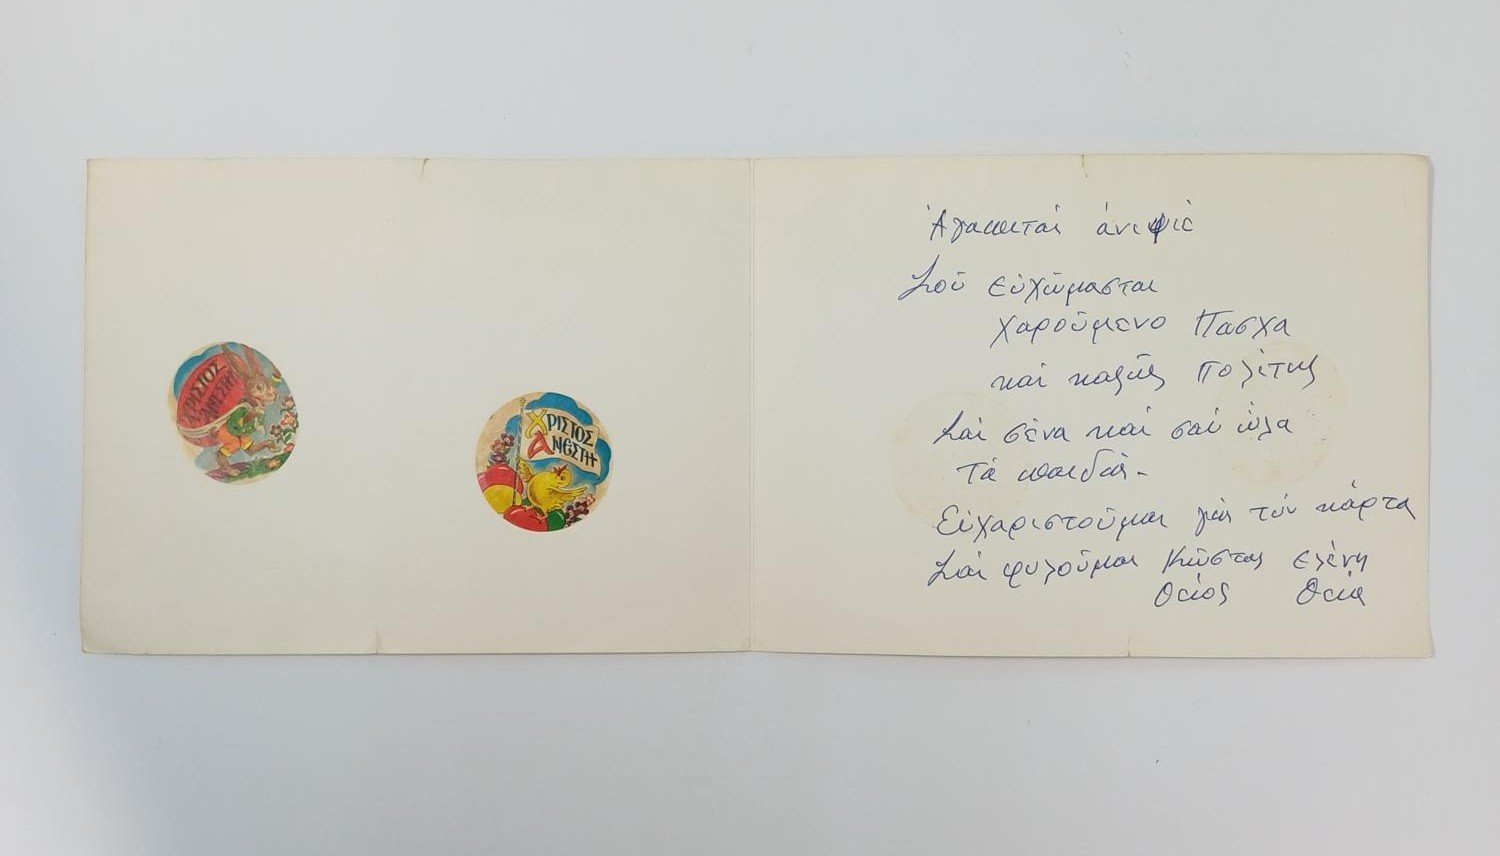 ΧΡΙΣΤΟΣ
ΑΝΕΣΤΗ
ΧΡΙΣΤΟΣ
ΑΝΕΣΤΗ
Ἀγαπιταὶ ἀνιψιὲ
Σοῦ εὐχῶμασται
χαροῦμενο Πασχα
καὶ καλῆς Πολίτης
Σαὶ σένα καὶ σαὶ ὡλα
τὰ παιδιὰ-
Εὐχαριστοῦμαι γιὰ τὴν κάρτα
Σαὶ φυλοῦμαι Κώστας Ελένη
θείος θεία